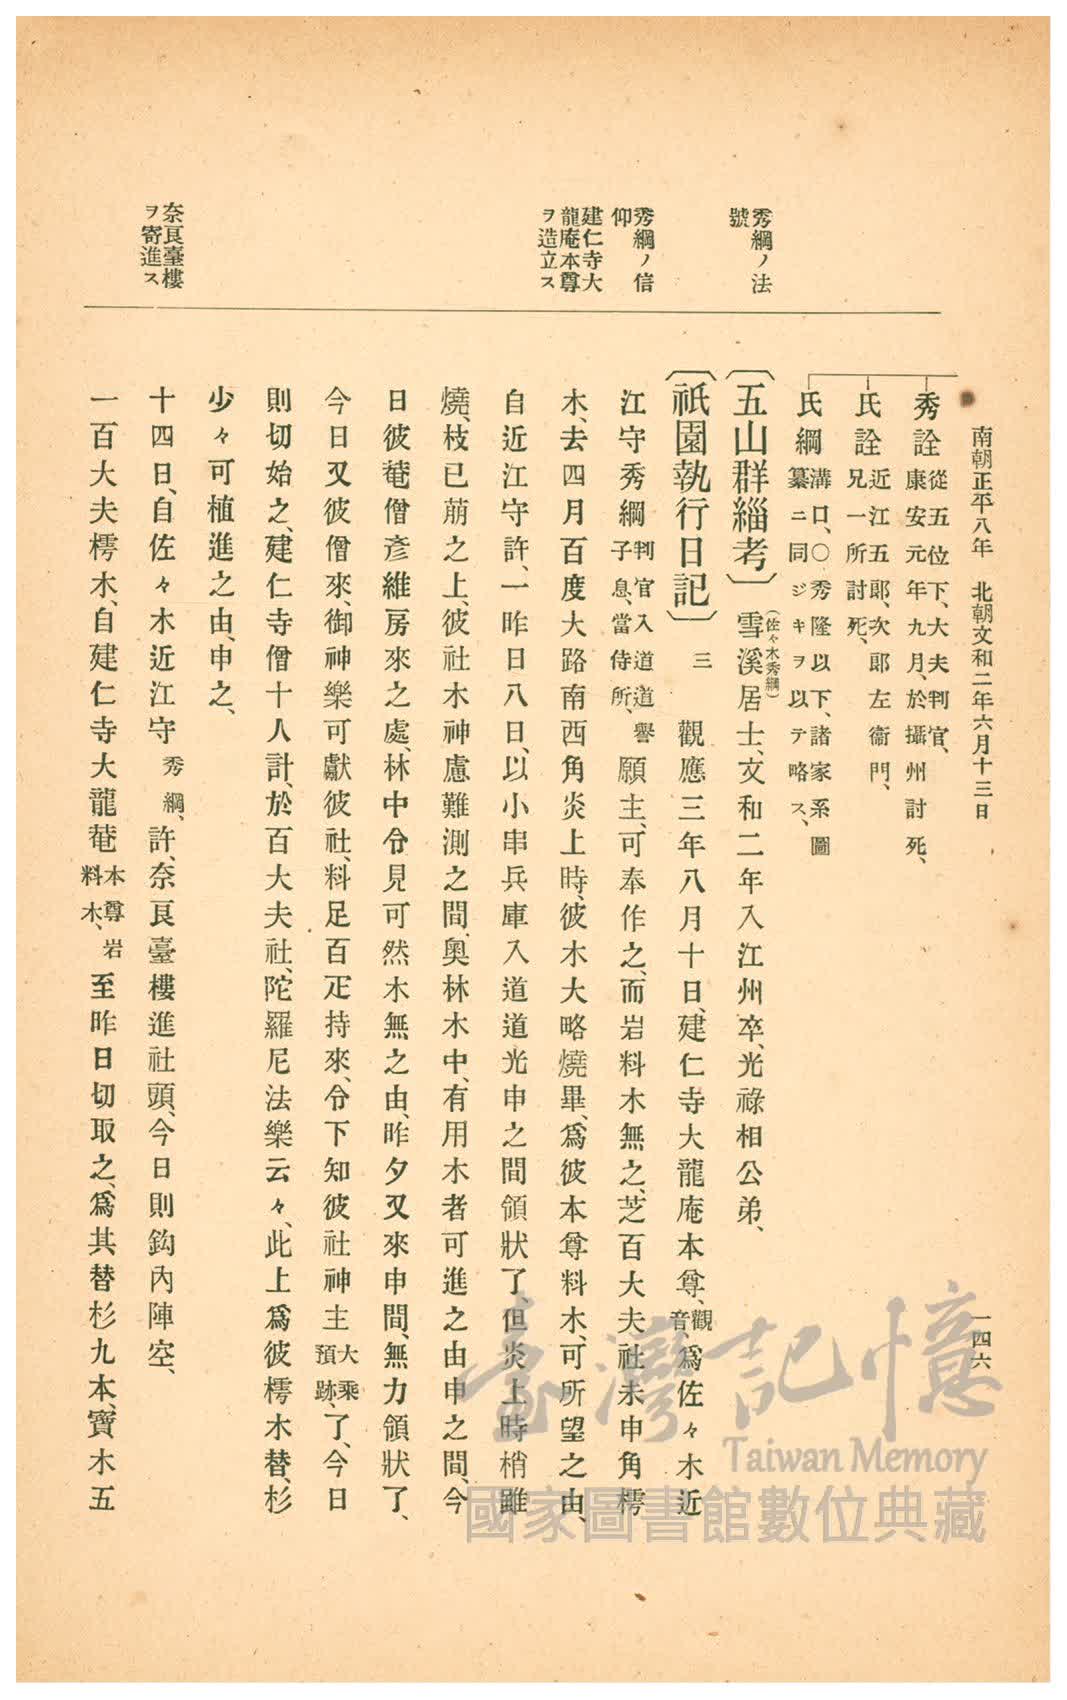 南朝正平八年　北朝文和二年六月十三日
一四六
秀詮 從五位下、大夫判官、
康安元年九月、於攝州討死、
氏詮 近江五郎、次郎左衞門、
兄一所討死、
氏綱 溝口、〇秀隆以下、諸家系圖
纂ニ同ジキヲ以テ略ス、
秀綱ノ法
號
〔五山群緇考〕 雪溪居士、文和二年入江州卒、光祿相公弟、
(佐々木秀綱)
秀綱ノ信
仰
建仁寺大
龍庵本尊
ヲ造立ス
〔祇園執行日記〕 三　觀應三年八月十日、建仁寺大龍庵本尊、觀音、爲佐々木近
江守秀綱判官入道道譽子息、當侍所、願主、可奉作之、而岩料木無之、芝百大夫社未申角樗
木、去四月百度大路南西角炎上時、彼木大略燒畢、爲彼本尊料木、可所望之由、
自近江守許、一昨日八日、以小串兵庫入道道光申之間領狀了、但炎上時梢雖
燒、枝已萠之上、彼社木神慮難測之間、奧林木中、有用木者可進之由申之間、今
日彼菴僧彥維房來之處、林中令見可然木無之由、昨夕又來申間、無力領狀了、
今日又彼僧來、御神樂可獻彼社、料足百疋持來、令下知彼社神主大乘預跡、了、今日
則切始之、建仁寺僧十人計、於百大夫社、陀羅尼法樂云々、此上爲彼樗木替、杉
少々可植進之由、申之、
奈良臺樓
ヲ寄進ス
十四日、自佐々木近江守秀綱、許、奈良臺樓進社頭、今日則鈎內陣空、
一百大夫樗木、自建仁寺大龍菴本尊岩料木、至昨日切取之、爲其替杉九本、寶木五
臺灣記憶
Taiwan Memory
國家圖書館數位典藏